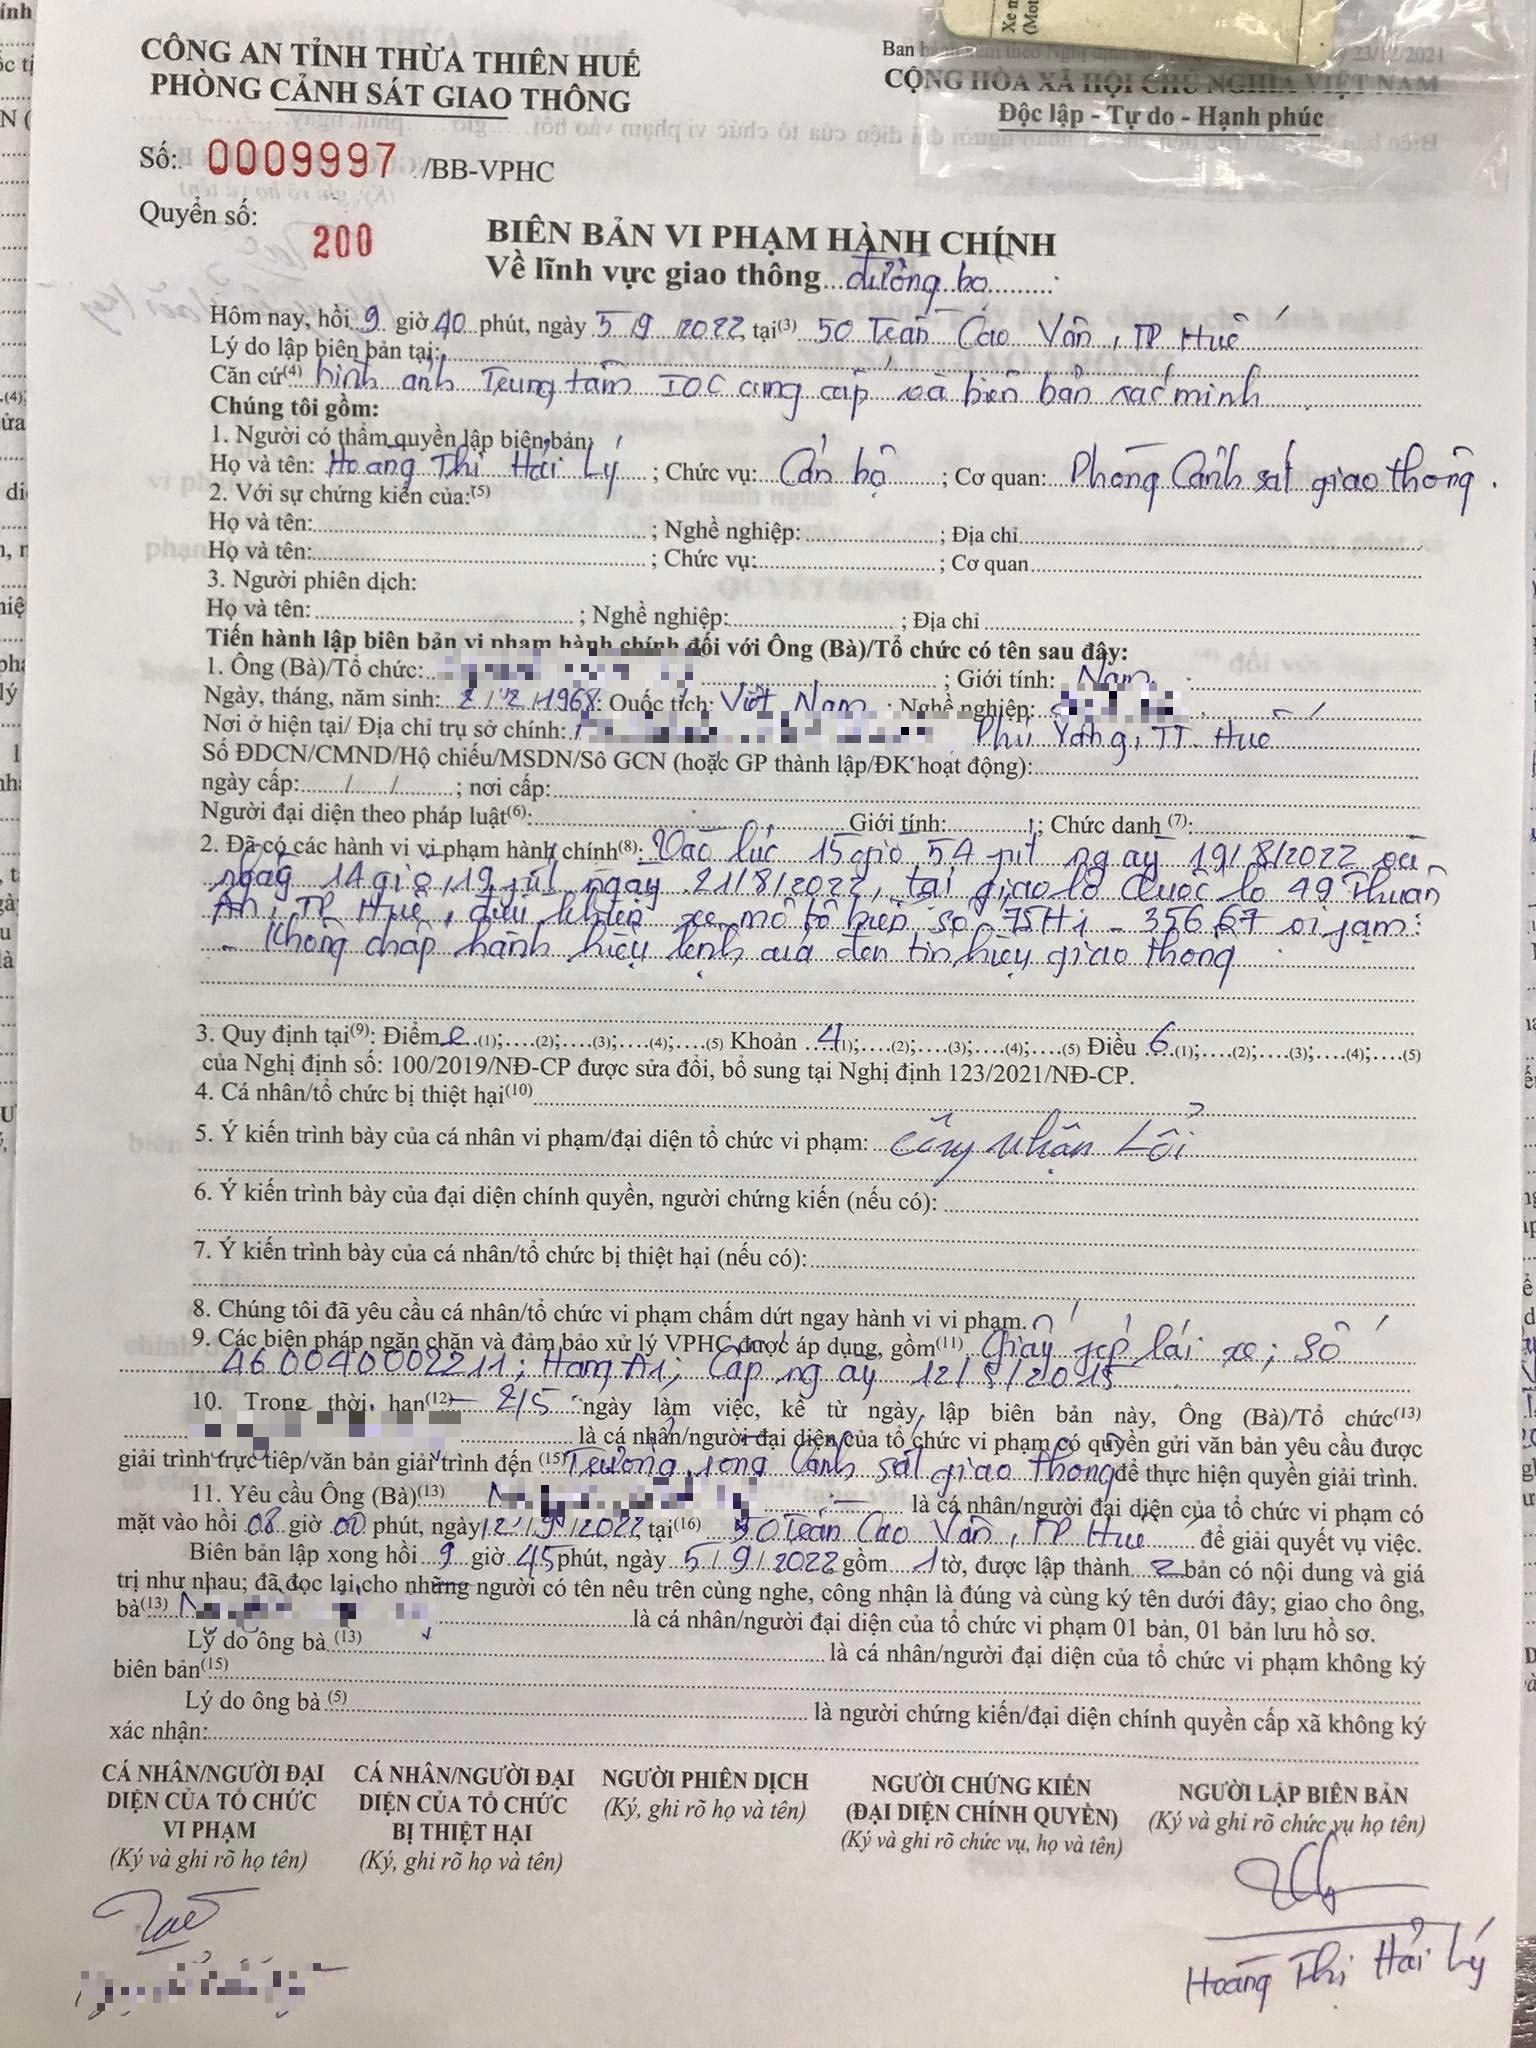 CÔNG AN TỈNH THỪA THIÊN HUẾ
PHÒNG CẢNH SÁT GIAO THÔNG
Số: 0009997 /BB-VPHC
Quyển số: 200
Ban hành kèm theo Nghị định 23/12/2021
CỘNG HÒA XÃ HỘI CHỦ NGHĨA VIỆT NAM
Độc lập - Tự do - Hạnh phúc
BIÊN BẢN VI PHẠM HÀNH CHÍNH
Về lĩnh vực giao thông đường bộ
Hôm nay, hồi 9 giờ 40 phút, ngày 5/9/2022, tại(3) 50 Trần Cao Vân, TP Huế
Lý do lập biên bản tại:
Căn cứ(4) hình ảnh Trung tâm IOC cung cấp và biên bản xác minh
Chúng tôi gồm:
1. Người có thẩm quyền lập biên bản:
Họ và tên: Hoàng Thị Hải Lý ; Chức vụ: Cán bộ ; Cơ quan: Phòng Cảnh sát giao thông.
2. Với sự chứng kiến của:(5)
Họ và tên: ; Nghề nghiệp: ; Địa chỉ
Họ và tên: ; Chức vụ: ; Cơ quan
3. Người phiên dịch:
Họ và tên: ; Nghề nghiệp: ; Địa chỉ
Tiến hành lập biên bản vi phạm hành chính đối với Ông (Bà)/Tổ chức có tên sau đây:
1. Ông (Bà)/Tổ chức: ; Giới tính: Nam
Ngày, tháng, năm sinh: 2/2/1968; Quốc tịch: Việt Nam ; Nghề nghiệp:
Nơi ở hiện tại/ Địa chỉ trụ sở chính: Phú Vang, TT. Huế
Số ĐDCN/CMND/Hộ chiếu/MSDN/Số GCN (hoặc GP thành lập/ĐK hoạt động):
ngày cấp: / / ; nơi cấp:
Người đại diện theo pháp luật(6): Giới tính: ; Chức danh (7):
2. Đã có các hành vi vi phạm hành chính(8): Vào lúc 15 giờ 54 phút ngày 19/8/2022 và
ngày 14 giờ 19 phút ngày 21/8/2022, tại giao lộ Quốc lộ 49 Thuận
An, TP Huế, điều khiển xe mô tô biển số 75H1 - 356.67 vi phạm:
- Không chấp hành hiệu lệnh của đèn tín hiệu giao thông
3. Quy định tại(9): Điểm e (1);....(2);....(3);....(4);....(5) Khoản 4 (1);....(2);....(3);....(4);....(5) Điều 6 (1);....(2);....(3);....(4);....(5)
của Nghị định số: 100/2019/NĐ-CP được sửa đổi, bổ sung tại Nghị định 123/2021/NĐ-CP.
4. Cá nhân/tổ chức bị thiệt hại(10)
5. Ý kiến trình bày của cá nhân vi phạm/đại diện tổ chức vi phạm: Công nhận Lỗi
6. Ý kiến trình bày của đại diện chính quyền, người chứng kiến (nếu có):
7. Ý kiến trình bày của cá nhân/tổ chức bị thiệt hại (nếu có):
8. Chúng tôi đã yêu cầu cá nhân/tổ chức vi phạm chấm dứt ngay hành vi vi phạm.
9. Các biện pháp ngăn chặn và đảm bảo xử lý VPHC được áp dụng, gồm(11) Giấy phép lái xe; số
460040002211; Hạng A1; Cấp ngày 12/5/2015
10. Trong thời hạn(12) 2/5 ngày làm việc, kể từ ngày lập biên bản này, Ông (Bà)/Tổ chức(13)
là cá nhân/người đại diện của tổ chức vi phạm có quyền gửi văn bản yêu cầu được
giải trình trực tiếp/văn bản giải trình đến (15) Trưởng phòng Cảnh sát giao thông để thực hiện quyền giải trình.
11. Yêu cầu Ông (Bà)(13) là cá nhân/người đại diện của tổ chức vi phạm có
mặt vào hồi 08 giờ 00 phút, ngày 12/9/2022 tại(16) 50 Trần Cao Vân, TP Huế để giải quyết vụ việc.
Biên bản lập xong hồi 9 giờ 45 phút, ngày 5/9/2022 gồm 1 tờ, được lập thành 2 bản có nội dung và giá
trị như nhau; đã đọc lại cho những người có tên nêu trên cùng nghe, công nhận là đúng và cùng ký tên dưới đây; giao cho ông,
bà(13) là cá nhân/người đại diện của tổ chức vi phạm 01 bản, 01 bản lưu hồ sơ.
Lý do ông bà (13) là cá nhân/người đại diện của tổ chức vi phạm không ký
biên bản(15)
Lý do ông bà (5) là người chứng kiến/đại diện chính quyền cấp xã không ký
xác nhận:
CÁ NHÂN/NGƯỜI ĐẠI DIỆN CỦA TỔ CHỨC VI PHẠM
(Ký và ghi rõ họ tên)
CÁ NHÂN/NGƯỜI ĐẠI DIỆN CỦA TỔ CHỨC BỊ THIỆT HẠI
(Ký, ghi rõ họ và tên)
NGƯỜI PHIÊN DỊCH
(Ký, ghi rõ họ và tên)
NGƯỜI CHỨNG KIẾN
(ĐẠI DIỆN CHÍNH QUYỀN)
(Ký và ghi rõ chức vụ, họ và tên)
NGƯỜI LẬP BIÊN BẢN
(Ký và ghi rõ chức vụ họ tên)
Hoàng Thị Hải Lý